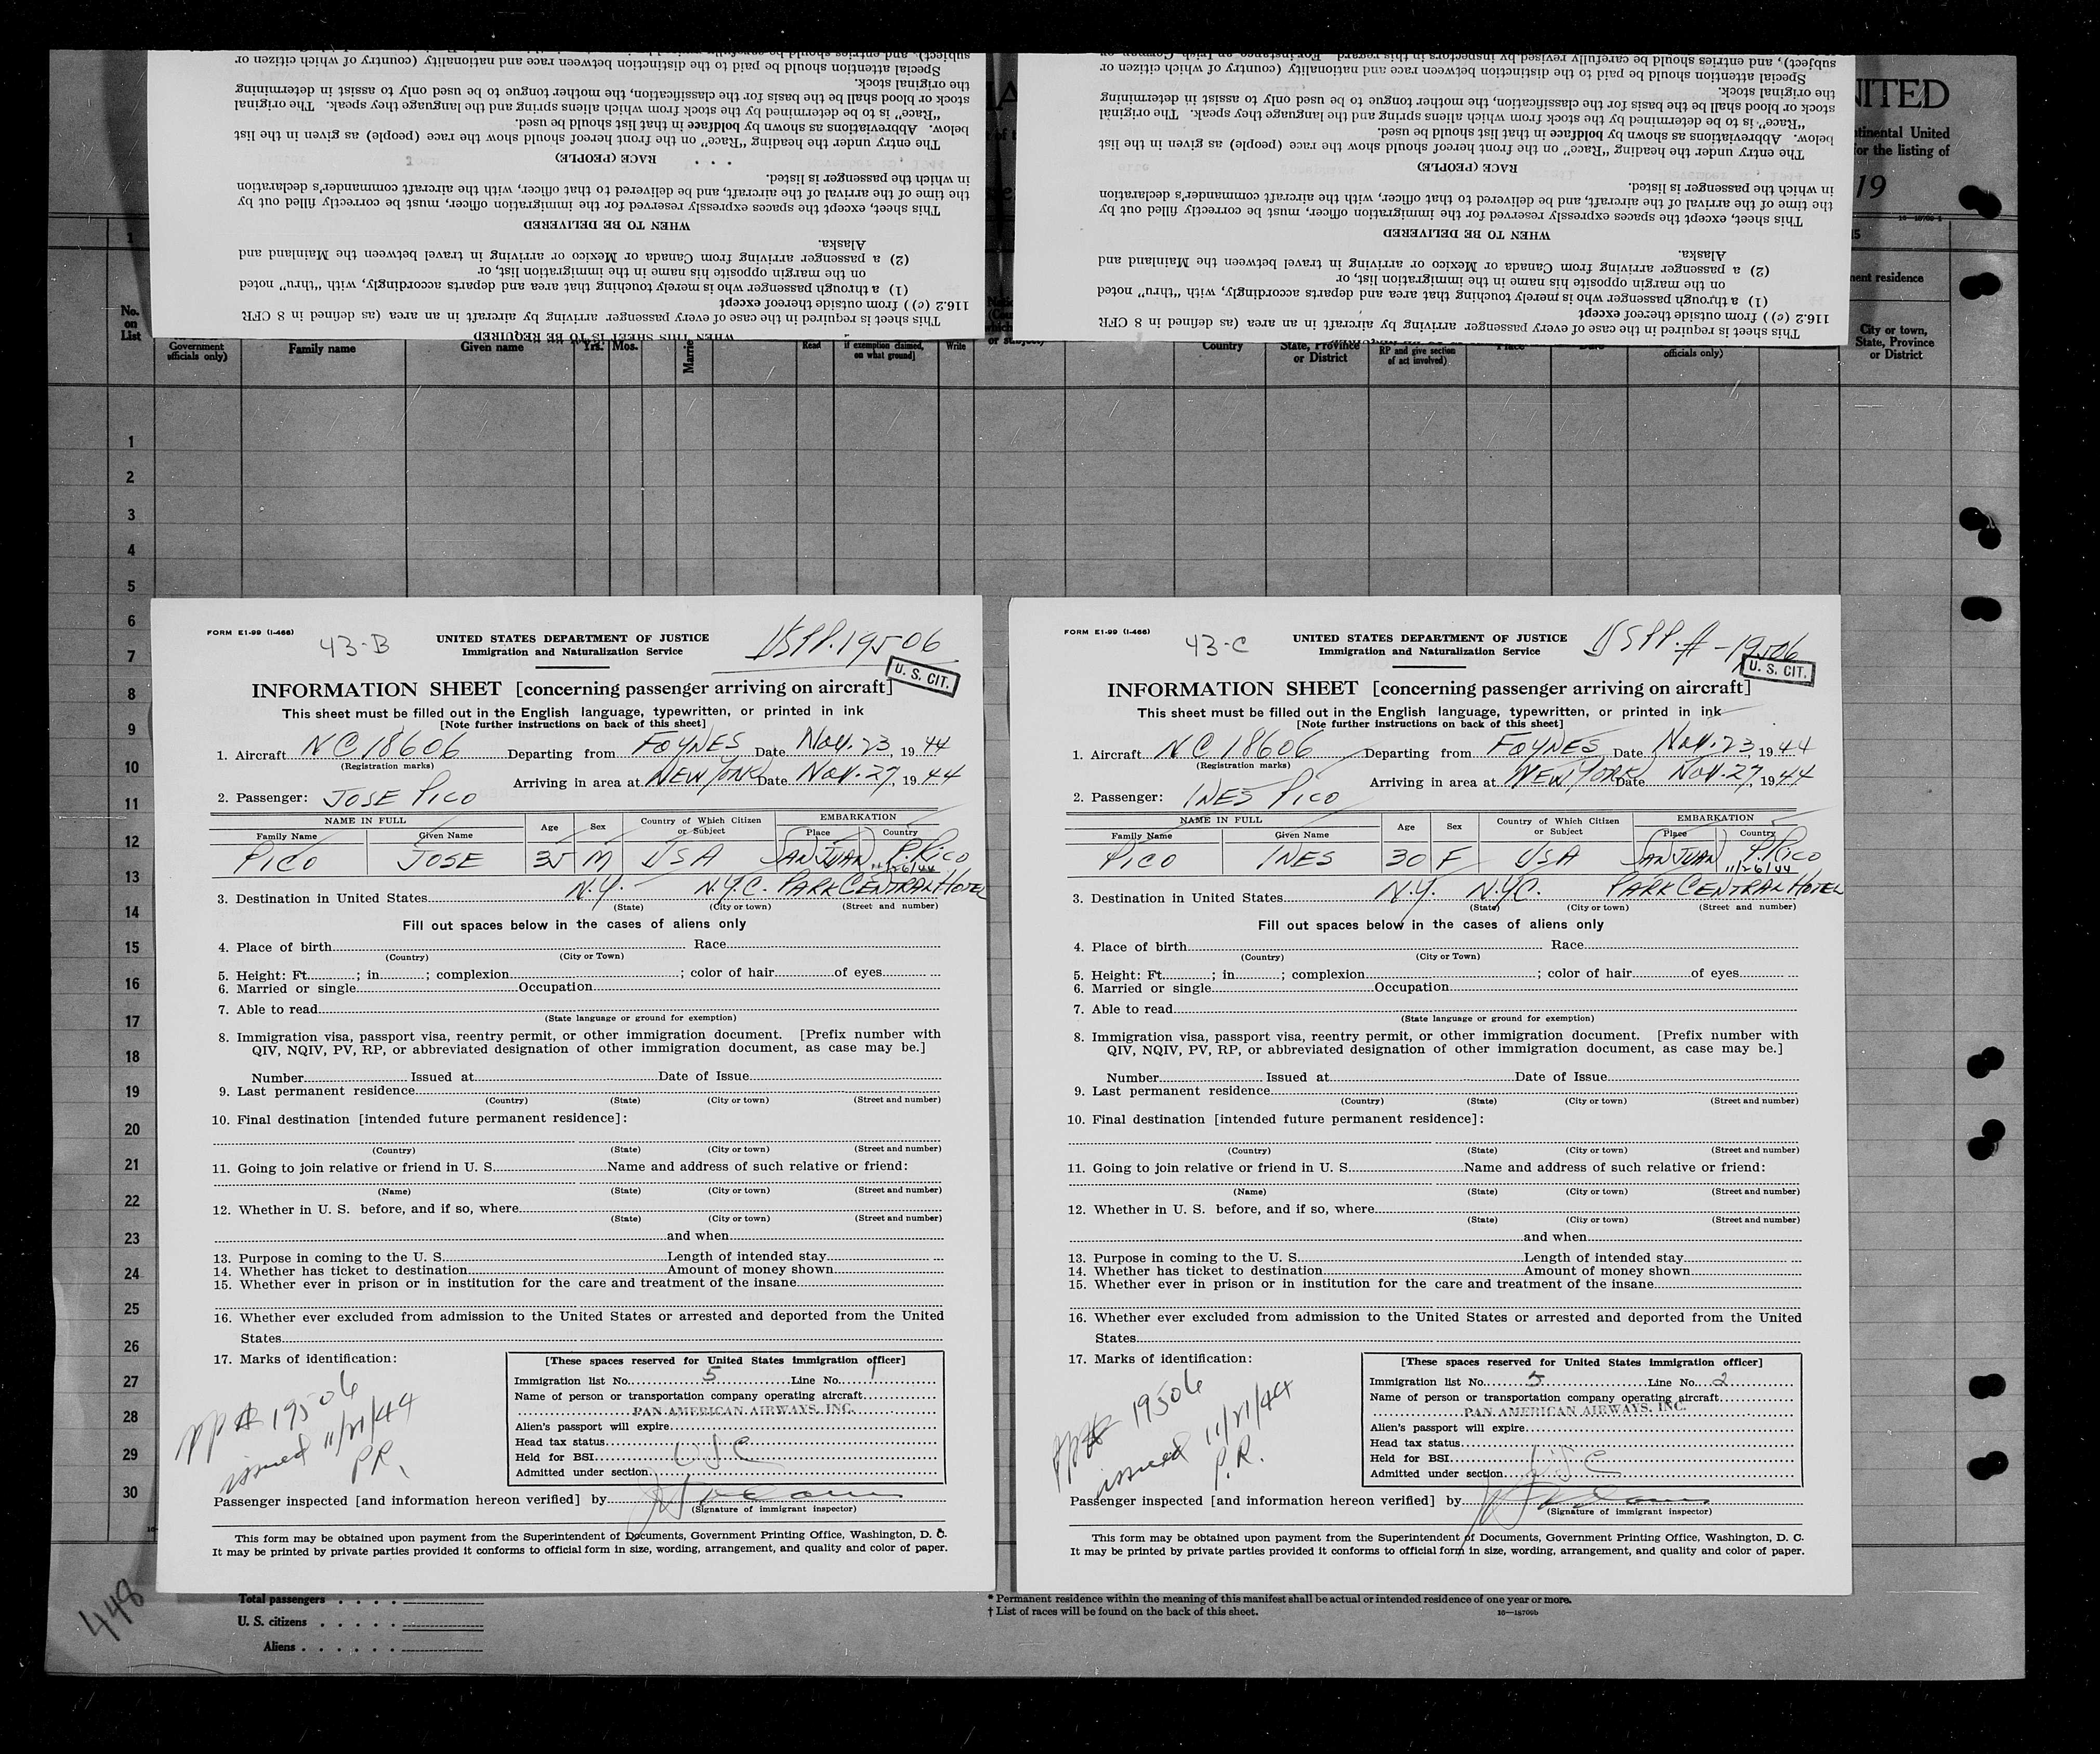 subject), and entries should be carefully revised by inspectors in this regard.
Special attention should be paid to the distinction between race and nationality (country of which citizen or
the original stock.
stock or blood shall be the basis for the classification, the mother tongue to be used only to assist in determining
"Race" is to be determined by the stock from which aliens spring and the language they speak. The original
below. Abbreviations as shown by boldface in that list should be used.
The entry under the heading "Race" on the front hereof should show the race (people) as given in the list
RACE (PEOPLE)
in which the passenger is listed.
the time of the arrival of the aircraft, and be delivered to that officer, with the aircraft commander's declaration
This sheet, except the spaces expressly reserved for the immigration officer, must be correctly filled out by
WHEN TO BE DELIVERED
Alaska.
(2) a passenger arriving from Canada or Mexico or arriving in travel between the Mainland and
on the margin opposite his name in the immigration list, or
(1) a through passenger who is merely touching that area and departs accordingly, with "thru" noted
116.2 (c)) from outside thereof except
This sheet is required in the case of every passenger arriving by aircraft in an area (as defined in 8 CFR
WHEN THIS SHEET IS TO BE REQUIRED
subject), and entries should be carefully revised by inspectors in this regard. For instance, an Irish
Special attention should be paid to the distinction between race and nationality (country of which citizen or
the original stock.
stock or blood shall be the basis for the classification, the mother tongue to be used only to assist in determining
"Race" is to be determined by the stock from which aliens spring and the language they speak. The original
below. Abbreviations as shown by boldface in that list should be used.
The entry under the heading "Race" on the front hereof should show the race (people) as given in the list
RACE (PEOPLE)
in which the passenger is listed.
the time of the arrival of the aircraft, and be delivered to that officer, with the aircraft commander's declaration
This sheet, except the spaces expressly reserved for the immigration officer, must be correctly filled out by
WHEN TO BE DELIVERED
Alaska.
(2) a passenger arriving from Canada or Mexico or arriving in travel between the Mainland and
on the margin opposite his name in the immigration list, or
(1) a through passenger who is merely touching that area and departs accordingly, with "thru" noted
116.2 (c)) from outside thereof except
This sheet is required in the case of every passenger arriving by aircraft in an area (as defined in 8 CFR
NITED
tinental United
or the listing of
19
ent residence
No. on List
Government officials only)
Family name
Given name
Yrs. Mos.
Read
if exemption claimed, on what ground]
Write
Country
State, Province or District
RP and give section of act involved)
Place
officials only)
City or town, State, Province or District
1
2
3
4
5
6
7
8
9
10
11
12
13
14
15
16
17
18
19
20
21
22
23
24
25
26
27
28
29
30
FORM E1-99 (I-466)
43-B
UNITED STATES DEPARTMENT OF JUSTICE
Immigration and Naturalization Service
USPP. 19506
U. S. CIT.
INFORMATION SHEET [concerning passenger arriving on aircraft]
This sheet must be filled out in the English language, typewritten, or printed in ink
[Note further instructions on back of this sheet]
1. Aircraft NC18606 Departing from FOYNES Date Nov. 23, 1944
(Registration marks)
Arriving in area at NEW YORK Date Nov. 27, 1944
2. Passenger: JOSE PICO
NAME IN FULL Age Sex Country of Which Citizen or Subject EMBARKATION
Family Name Given Name Place Country
PICO JOSE 35 M USA SAN JUAN P. RICO
11/26/44
3. Destination in United States N.Y. N.Y.C. PARK CENTRAL HOTEL
(State) (City or town) (Street and number)
Fill out spaces below in the cases of aliens only
4. Place of birth Race
(Country) (City or Town)
5. Height: Ft. ; in. ; complexion ; color of hair of eyes
6. Married or single Occupation
7. Able to read
(State language or ground for exemption)
8. Immigration visa, passport visa, reentry permit, or other immigration document. [Prefix number with
QIV, NQIV, PV, RP, or abbreviated designation of other immigration document, as case may be.]
Number Issued at Date of Issue
9. Last permanent residence
(Country) (State) (City or town) (Street and number)
10. Final destination [intended future permanent residence]:
(Country) (State) (City or town) (Street and number)
11. Going to join relative or friend in U. S. Name and address of such relative or friend:
(Name) (State) (City or town) (Street and number)
12. Whether in U. S. before, and if so, where
(State) (City or town) (Street and number)
and when
13. Purpose in coming to the U. S. Length of intended stay
14. Whether has ticket to destination Amount of money shown
15. Whether ever in prison or in institution for the care and treatment of the insane
16. Whether ever excluded from admission to the United States or arrested and deported from the United
States
17. Marks of identification:
PP # 19506
issued 11/21/44
P.R.
[These spaces reserved for United States immigration officer]
Immigration list No. 5 Line No. 1
Name of person or transportation company operating aircraft
PAN AMERICAN AIRWAYS, INC.
Alien's passport will expire
Head tax status
Held for BSI USC
Admitted under section
Passenger inspected [and information hereon verified] by
(Signature of immigrant inspector)
This form may be obtained upon payment from the Superintendent of Documents, Government Printing Office, Washington, D. C.
It may be printed by private parties provided it conforms to official form in size, wording, arrangement, and quality and color of paper.
FORM E1-99 (I-466)
43-C
UNITED STATES DEPARTMENT OF JUSTICE
Immigration and Naturalization Service
USPP. # - 19506
U. S. CIT.
INFORMATION SHEET [concerning passenger arriving on aircraft]
This sheet must be filled out in the English language, typewritten, or printed in ink
[Note further instructions on back of this sheet]
1. Aircraft NC18606 Departing from FOYNES Date Nov. 23, 1944
(Registration marks)
Arriving in area at NEW YORK Date Nov. 27, 1944
2. Passenger: INES PICO
NAME IN FULL Age Sex Country of Which Citizen or Subject EMBARKATION
Family Name Given Name Place Country
PICO INES 30 F USA SAN JUAN P. RICO
11/26/44
3. Destination in United States N.Y. N.Y.C. PARK CENTRAL HOTEL
(State) (City or town) (Street and number)
Fill out spaces below in the cases of aliens only
4. Place of birth Race
(Country) (City or Town)
5. Height: Ft. ; in. ; complexion ; color of hair of eyes
6. Married or single Occupation
7. Able to read
(State language or ground for exemption)
8. Immigration visa, passport visa, reentry permit, or other immigration document. [Prefix number with
QIV, NQIV, PV, RP, or abbreviated designation of other immigration document, as case may be.]
Number Issued at Date of Issue
9. Last permanent residence
(Country) (State) (City or town) (Street and number)
10. Final destination [intended future permanent residence]:
(Country) (State) (City or town) (Street and number)
11. Going to join relative or friend in U. S. Name and address of such relative or friend:
(Name) (State) (City or town) (Street and number)
12. Whether in U. S. before, and if so, where
(State) (City or town) (Street and number)
and when
13. Purpose in coming to the U. S. Length of intended stay
14. Whether has ticket to destination Amount of money shown
15. Whether ever in prison or in institution for the care and treatment of the insane
16. Whether ever excluded from admission to the United States or arrested and deported from the United
States
17. Marks of identification:
PP# 19506
issued 11/21/44
P.R.
[These spaces reserved for United States immigration officer]
Immigration list No. 5 Line No. 2
Name of person or transportation company operating aircraft
PAN AMERICAN AIRWAYS, INC.
Alien's passport will expire
Head tax status
Held for BSI
Admitted under section USC
Passenger inspected [and information hereon verified] by
(Signature of immigrant inspector)
This form may be obtained upon payment from the Superintendent of Documents, Government Printing Office, Washington, D. C.
It may be printed by private parties provided it conforms to official form in size, wording, arrangement, and quality and color of paper.
448
Total passengers
U. S. citizens
Aliens
* Permanent residence within the meaning of this manifest shall be actual or intended residence of one year or more.
† List of races will be found on the back of this sheet.
16—18709b